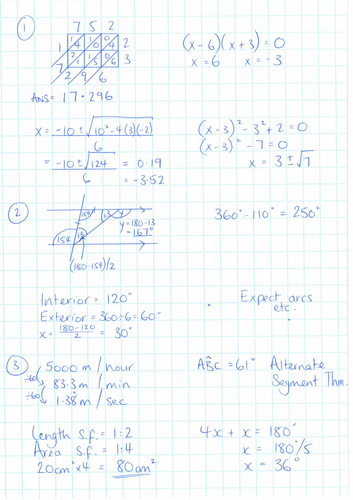 1
7 5 2
1 1/4 1/0 0/4 2
7 2/1 1/5 0/6 3
2 9 6
ANS = 17.296
(x-6)(x+3)=0
x=6 x=-3
x = -10 ± √10²-4(3)(-2)
6
= -10 ± √124 = 0.19
6 = -3.52
(x-3)² - 3² + 2 = 0
(x-3)² - 7 = 0
x = 3 ± √7
2
154 13 y
y = 180-13
= 167°
154 13
(180-154)/2
360° - 110° = 250°
Interior = 120°
Exterior = 360÷6 = 60°
x = 180-120 = 30°
2
Expect arcs
etc.
3
5000 m / hour
÷60
83.3 m / min
÷60
1.38 m / sec
AB̂C = 61° Alternate
Segment Thm.
Length S.f. = 1:2
Area S.f. = 1:4
20cm² x4 = 80cm²
4x + x = 180°
x = 180°/5
x = 36°